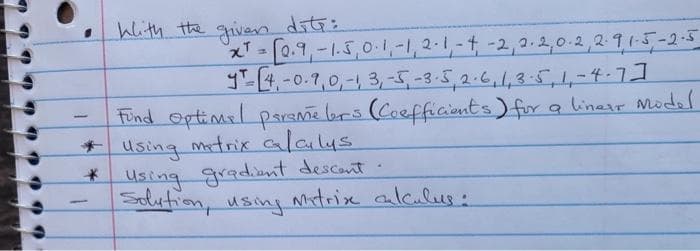 • With the given dats:
xᵀ = [0.9, -1.5, 0.1, -1, 2.1, -4, -2, 2.2, 0.2, 2.9, 1.5, -2.5
yᵀ = [4, -0.9, 0, -1, 3, -5, -3.5, 2.6, 1, 3.5, 1, -4.7]
- Find optimal parameters (Coefficients) for a linear model
* using matrix calculus
* using gradient descent.
- Solution, using Matrix calculus: